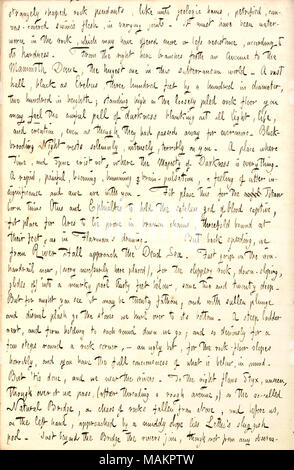 strangely shaped rock pendants, like unto geologic hams, petrified,
cured swine's flesh, in varying cuts. It must have been water-
worn in the rock, which may have offered more or less resistance, according to
its hardness. From the right here branches forth an avenue to the
Mammoth Dome, the highest one in this subterranean world. A vast
hall, black as Erebus, three hundred feet by a hundred in diameter,
two hundred in height, standing high on the loosely piled rock floor you
may feel the awful pall of darkness blanking out all light, life,
and creation, even as though they had passed away for evermore. Black-
brooding Night rests solemnly, intensely, horribly on you. A place where
Time, and Space exist not, where the Majesty of Darkness is everything.
A rapid, painful, booming, humming brain-pulsation, a feeling of utter in-
significance and awe are with you. Fit place this for the Titan
born twins Otus and Ephialtes to hold the
fit place for Ares to lie prone in brazen chains, threefold bound at
their feet, as in Flaxman's drawing. But back speeding, we
from River Hall approach the Dead Sea. Fast grip on the iron
handrail near, (very uncertainly here placed), for the slippery rock, down-sloping,
glides off into a murky pool thirty feet below, some ten and twenty deep.
But for aught you see it may be twenty fathom, and with sullen plunge
and dismal plash go the stones we hurl over to its bottom. A steep ladder
next, and from holding to rock round down we go; and so deviously for a
few steps around a rock corner, an ugly bit, for the rock-floor slopes
horribly, and you have the full consciousness of what is below, in mind.
But 'tis done, and we near the rivers. To the right flows Styx, unseen
though over it we pass, (after threading a rough avenue,) on the so-called
Natural Bridge, a chaos of rocks fallen from above, and before us,
on the left hand, approached by a muddy slope lies Lethe's sluggish
pool. Just beyond the Bridge the rivers join, though not from any observ-
alamy
Image ID: MAKPTW
www.alamy.com